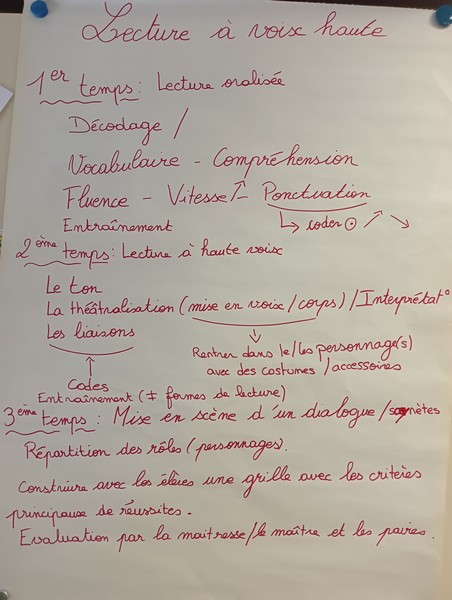 Lecture à voix haute
1er temps : Lecture oralisée
Décodage /
Vocabulaire - Compréhension
Fluence - Vitesse ↗ - Ponctuation
↳ coder ⊙ ↗ ↘
Entraînement
2ème temps : Lecture à haute voix
Le ton
La théâtralisation (mise en voix / corps) / Interprétat°
Les liaisons
Rentrer dans le/les personnage(s)
avec des costumes / accessoires
Codes
Entraînement (≠ formes de lecture)
3ème temps : Mise en scène d'un dialogue / saynètes
Répartition des rôles (personnages).
Construire avec les élèves une grille avec les critères
principaux de réussites.
Evaluation par la maitresse / le maître et les paires.